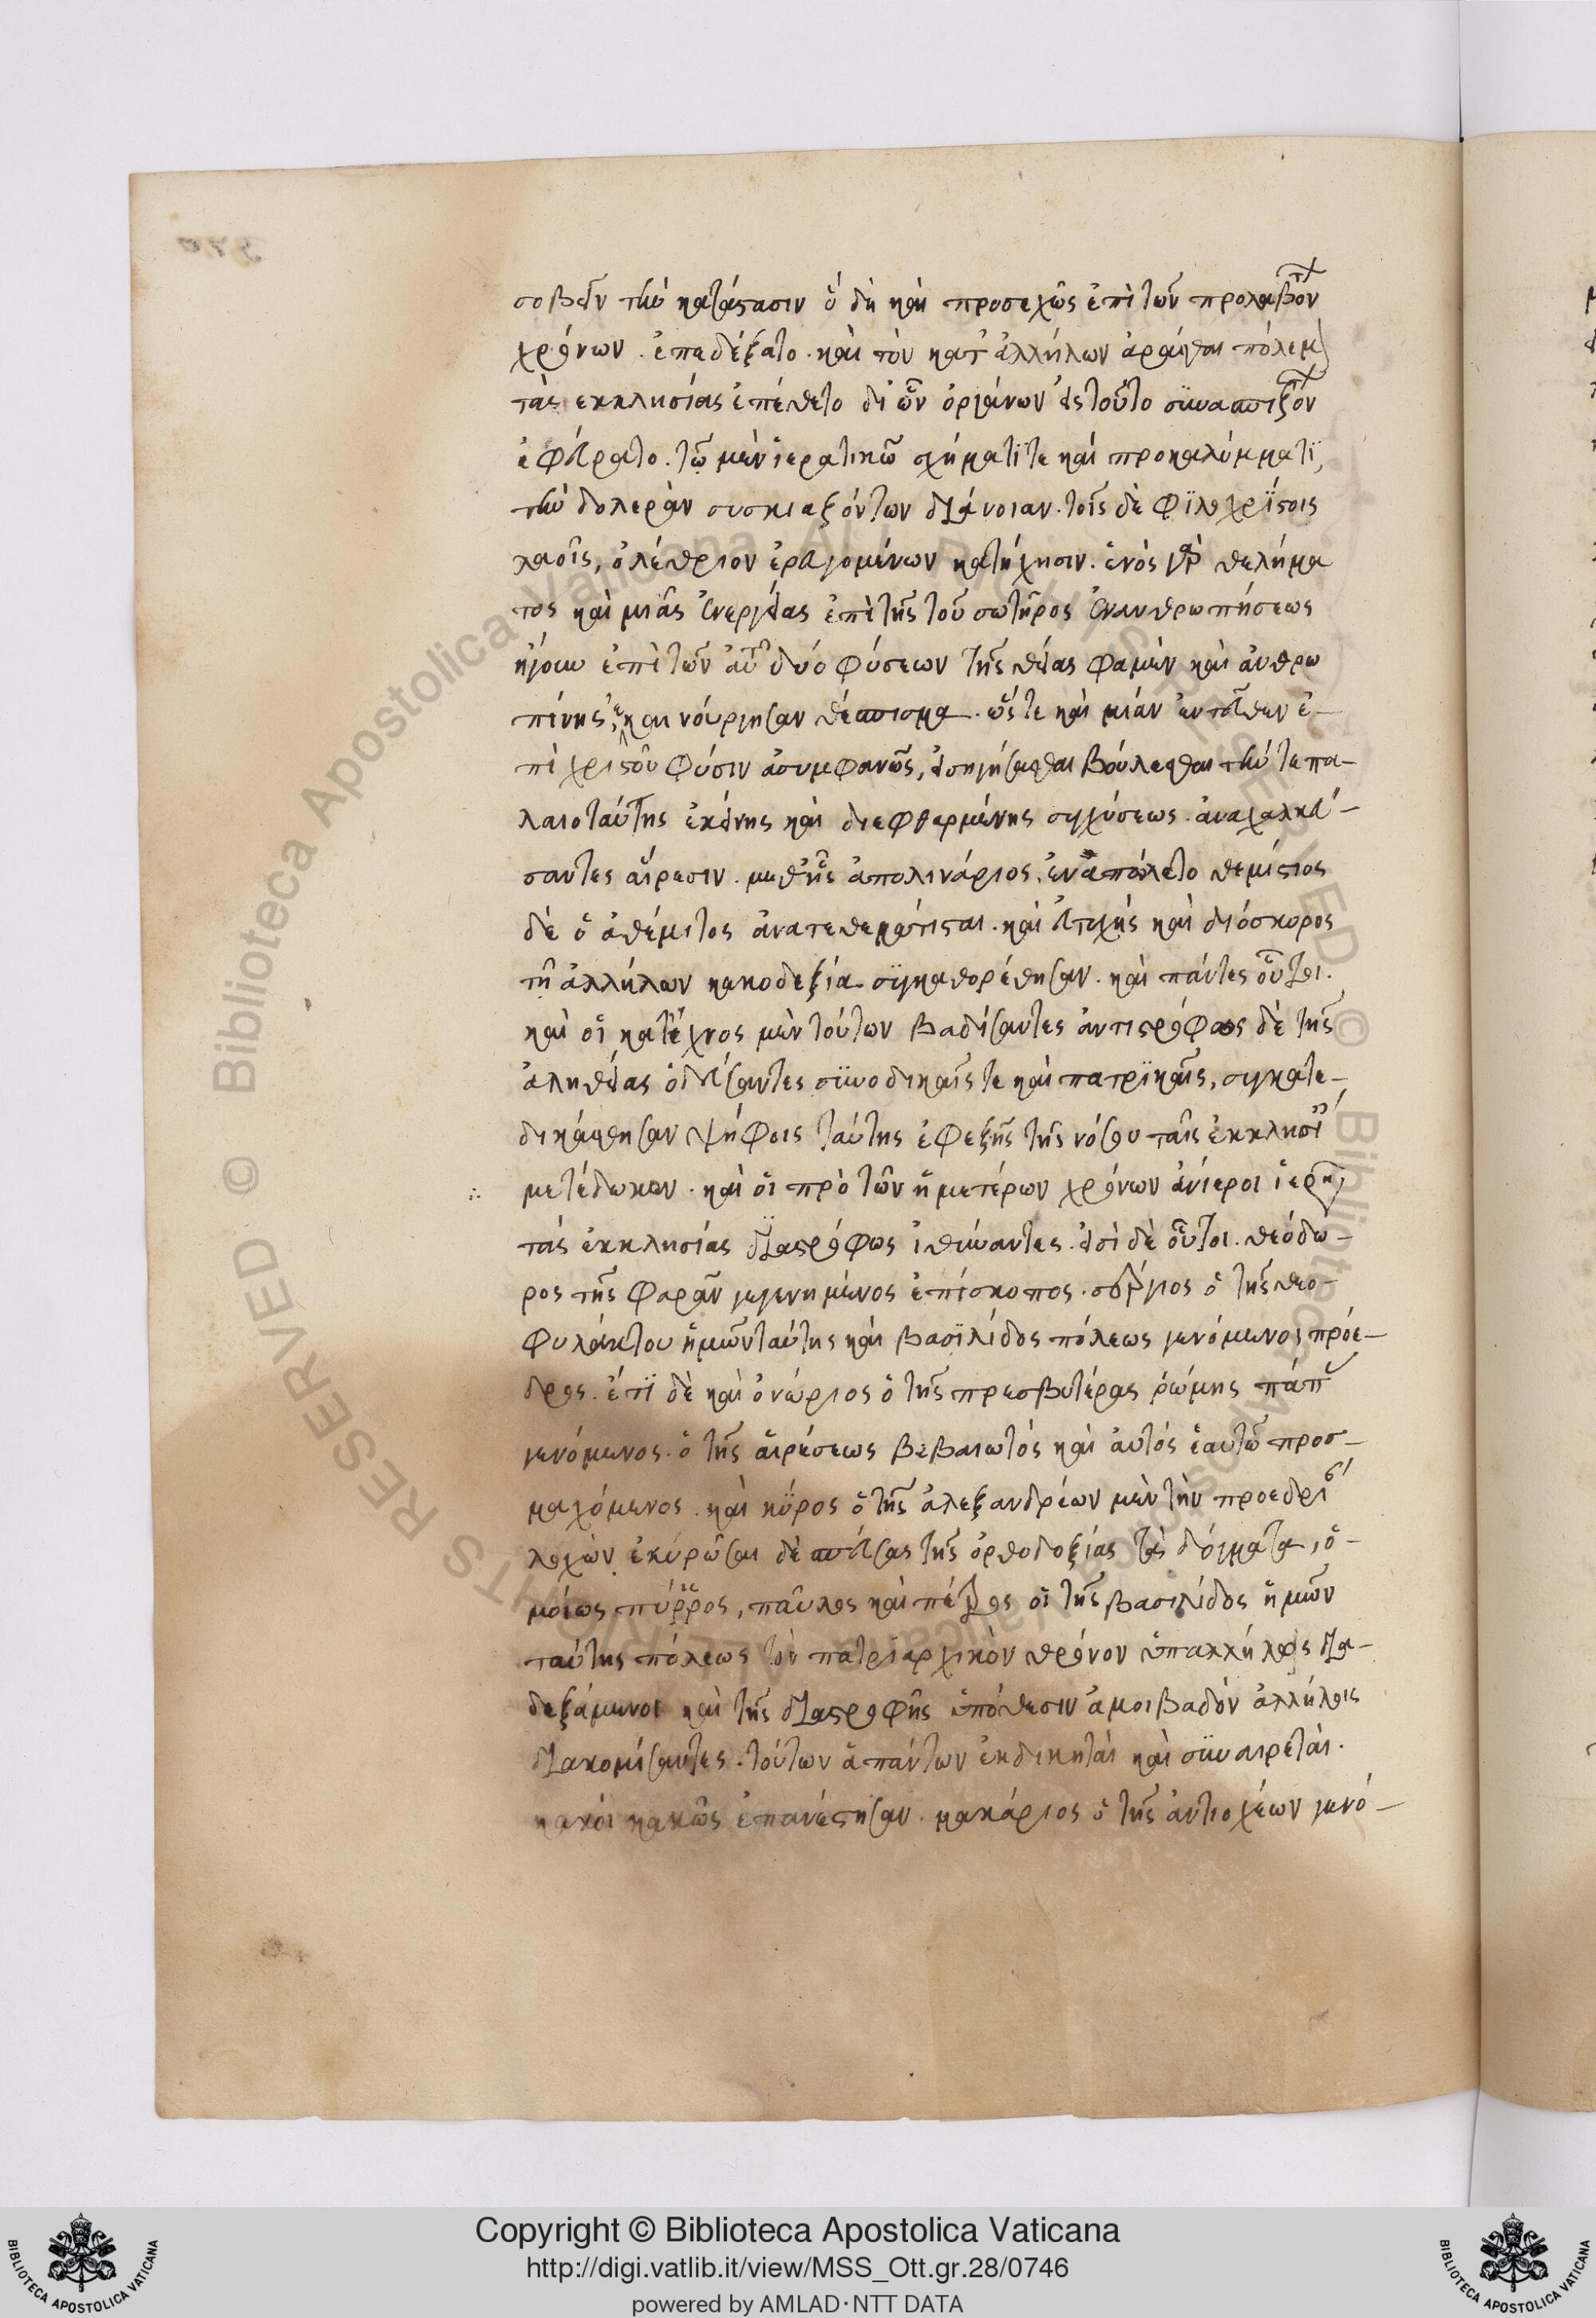 σοβεῖν τὴν κατάστασιν ὃ δὴ καὶ προσεχῶς ἐπὶ τῶν προλαβόντ
χρόνων. ἐπεδέξατο. καὶ τὸν κατ' ἀλλήλων ἀρᾶσθαι πόλεμ
τὰς ἐκκλησίας ἐπέθετο δι' ὧν ὀργάνων εἰς τοῦτο συνασπιζόντ
ἐφεύρατο. τῶ μὲν ἱερατικῶ σχήματί τε καὶ προκαλύμματι,
τὴν δολερὰν συσκιαζόντων διάνοιαν. τοῖς δὲ φιλοχρίστοις
λαοῖς, ὀλέθριον ἐρευγομένων κατήχησιν. ἑνὸς γὰρ θελήμα
τος καὶ μιᾶς ἐνεργείας ἐπὶ τῆς τοῦ σωτῆρος ἐνανθρωπήσεως
ἤγουν ἐπὶ τῶν αὐτ δύο φύσεων τῆς θείας φαμὲν καὶ ἀνθρω
πίνης ἐκαινούργησαν θέσπισμα. ὥστε καὶ μίαν ἐντεῦθεν ἐ-
πὶ χριστοῦ φύσιν ἀσυμφανῶς, εἰσηγήσασθαι βούλεσθαι τήν τε πα-
λαιο ταύτης ἐκείνης καὶ διεφθαρμένης συγχύσεως. ἀναχαλκεύ-
σαντες αἵρεσιν. μεθ' ἧς ἀπολινάριος. ἐναπόλετο θεμίστιος
δὲ ὁ ἀθέμιτος ἀνατεθεμάτισται. καὶ εὐτυχὴς καὶ διόσκορος
τῆ ἀλλήλων κακοδεξία συγκαθορέθησαν. καὶ πάντες οὗτοι.
καὶ οἱ κατ' ἔχνος μὲν τούτων βαδίσαντες ἀντιστρόφως δὲ τῆς
ἀληθείας ὁδεύσαντες συνοδικαῖς τε καὶ πατρικαῖς, συγκατε-
δικάσθησαν ψήφοις ταύτης ἐφεξῆς τῆς νόσου ταῖς ἐκκλησί
μετέδωκαν. καὶ οἱ πρὸ τῶν ἡμετέρων χρόνων ἀνίεροι ἱερεῖς
τὰς ἐκκλησίας διαστρόφως ἰθύναντες. εἰσὶ δὲ οὗτοι. θεόδω-
ρος τῆς φαρὰν γεγενημένος ἐπίσκοπος. σέργιος ὁ τῆς θεο-
φυλάκτου ἡμῶν ταύτης καὶ βασιλίδος πόλεως γενόμενος πρόε-
δρος. ἔτι δὲ καὶ ὀνώριος ὁ τῆς πρεσβυτέρας ῥώμης πάπ
γενόμενος. ὁ τῆς αἱρέσεως βεβαιωτὸς καὶ αὐτὸς ἑαυτῶ προσ-
μαχόμενος. καὶ κύρος ὁ τῆς ἀλεξανδρέων μὲν τὴν προεδρί
λαχὼν ἐκύρῶσαι δὲ σπεύσας τῆς ὀρθοδοξίας τὰ δόγματα, ὁ-
μοίως πύρρος, παῦλος καὶ πέτρος οἱ τῆς βασιλίδος ἡμῶν
ταύτης πόλεως τὸν πατριαρχικὸν θρόνον ὑπαλλήλως δια-
δεξάμενοι καὶ τῆς διαστροφῆς ὑπόθεσιν ἀμοιβαδὸν ἀλλήλοις
διακομίσαντες. τούτων ἁπάντων ἐκδικηταὶ καὶ συναιρεταὶ.
κακοὶ κακῶς ἐπανέστησαν. μακάριος ὁ τῆς ἀντιοχέων γενό-
Copyright © Biblioteca Apostolica Vaticana
http://digi.vatlib.it/view/MSS_Ott.gr.28/0746
powered by AMLAD·NTT DATA